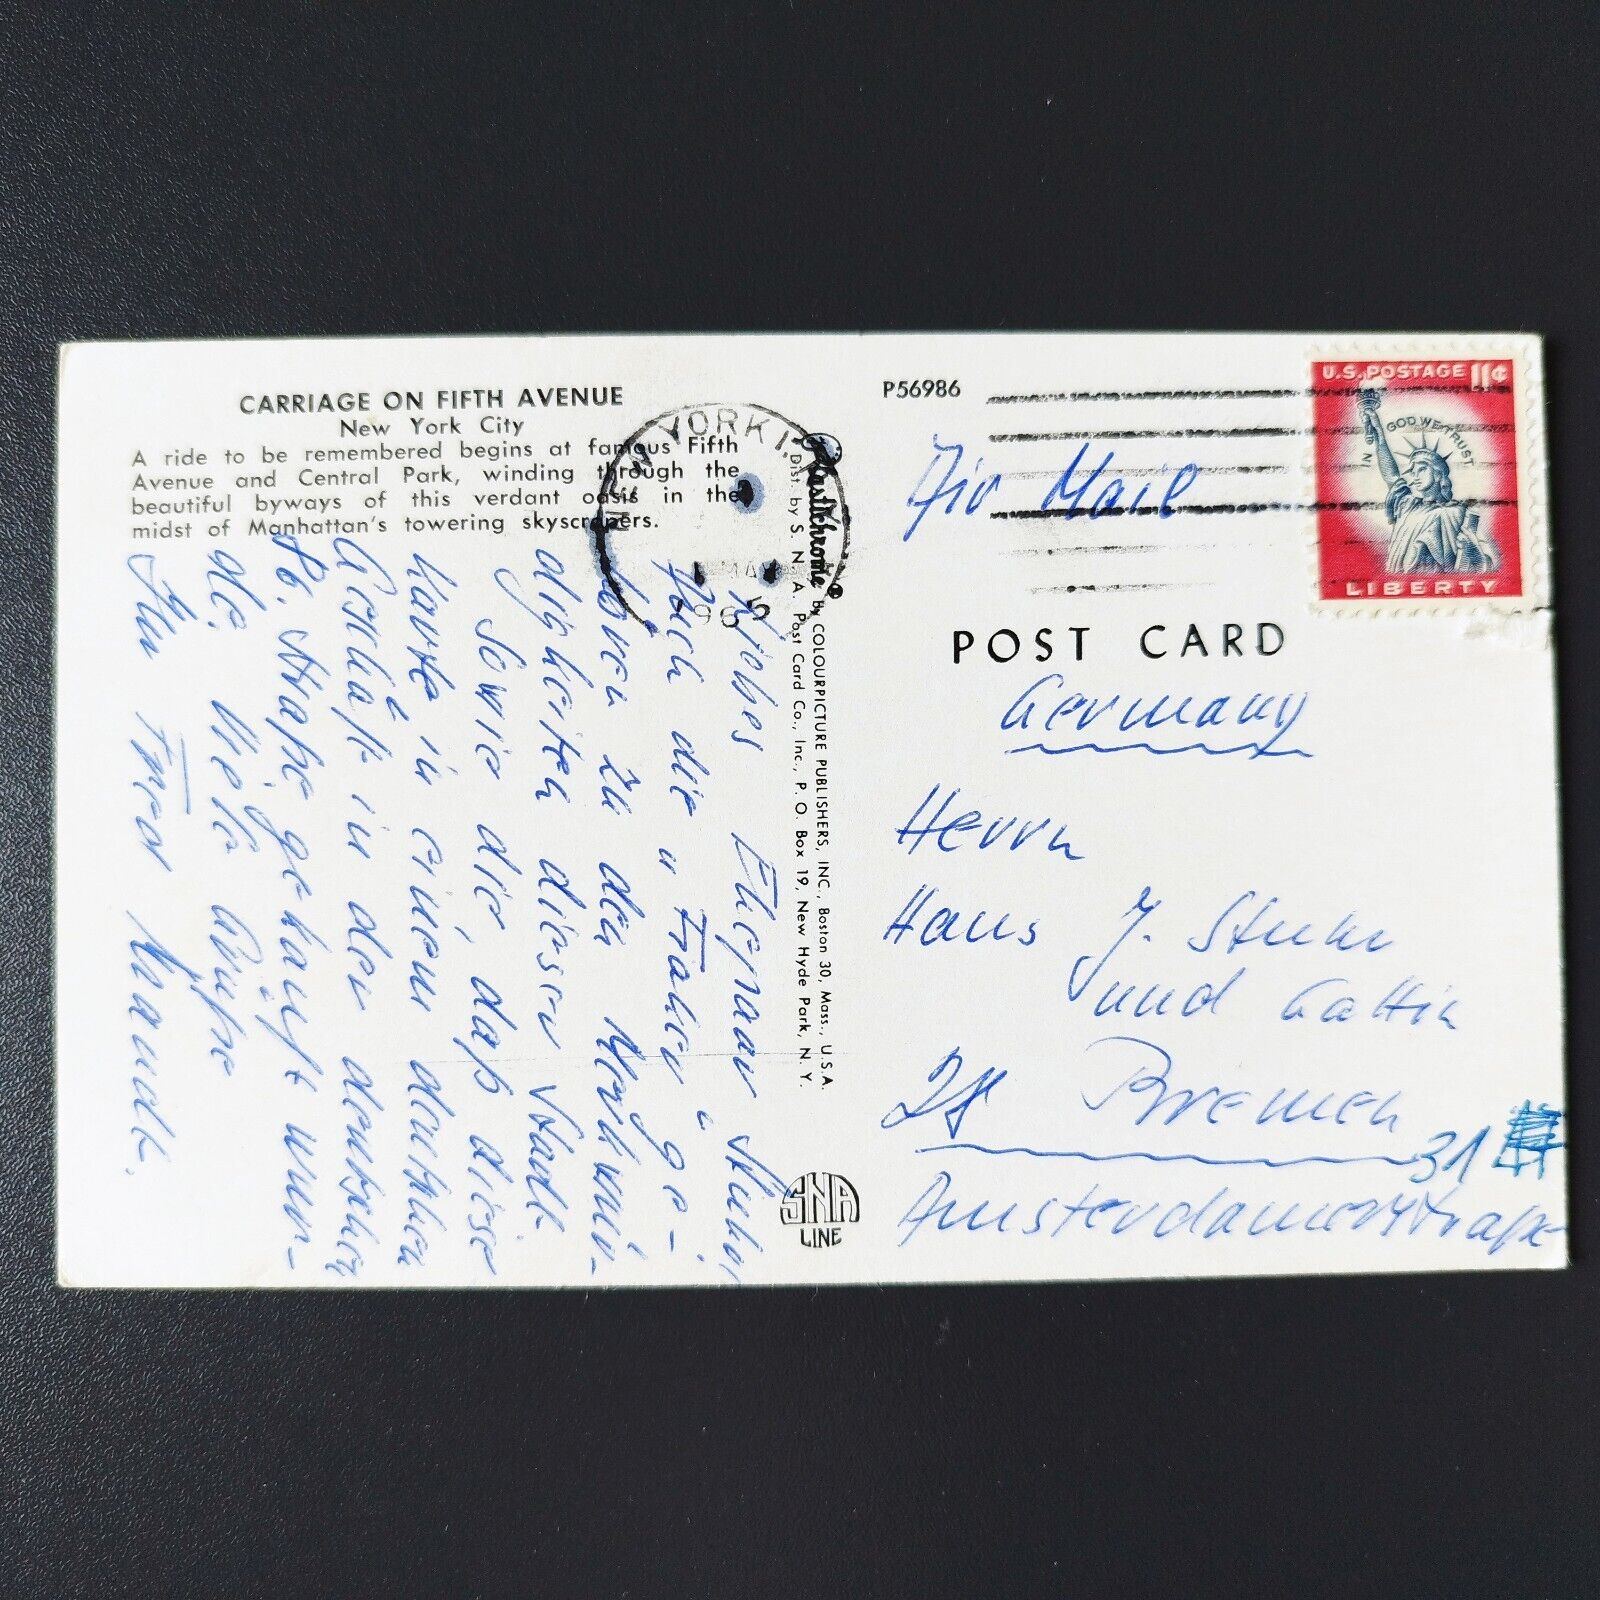 CARRIAGE ON FIFTH AVENUE
New York City
A ride to be remembered begins at famous Fifth
Avenue and Central Park, winding through the
beautiful byways of this verdant oasis in the
midst of Manhattan's towering skyscrapers.
Liebes Ehepaar Stuhr,
Auch die Fiaker ge-
hören zu den Merkwür-
digkeiten dieser Stadt.
Sowie die, daß diese
Karte in einem deutschen
Geschäft in der deutschen
86. Straße gekauft wur-
de. Viele Grüße
Ihr Fred
NEW YORK
Plastichrome® by COLOURPICTURE PUBLISHERS, INC., Boston 30, Mass., U.S.A.
Dist. by S. N. A. Post Card Co., Inc., P. O. Box 19, New Hyde Park, N. Y.
SNA
LINE
P56986
U.S. POSTAGE 11¢
IN GOD WE TRUST
LIBERTY
Air Mail
POST CARD
Germany
Herrn
Hans J. Stuhr
und Gattin
28 Bremen
31
Amsterdamerstraße